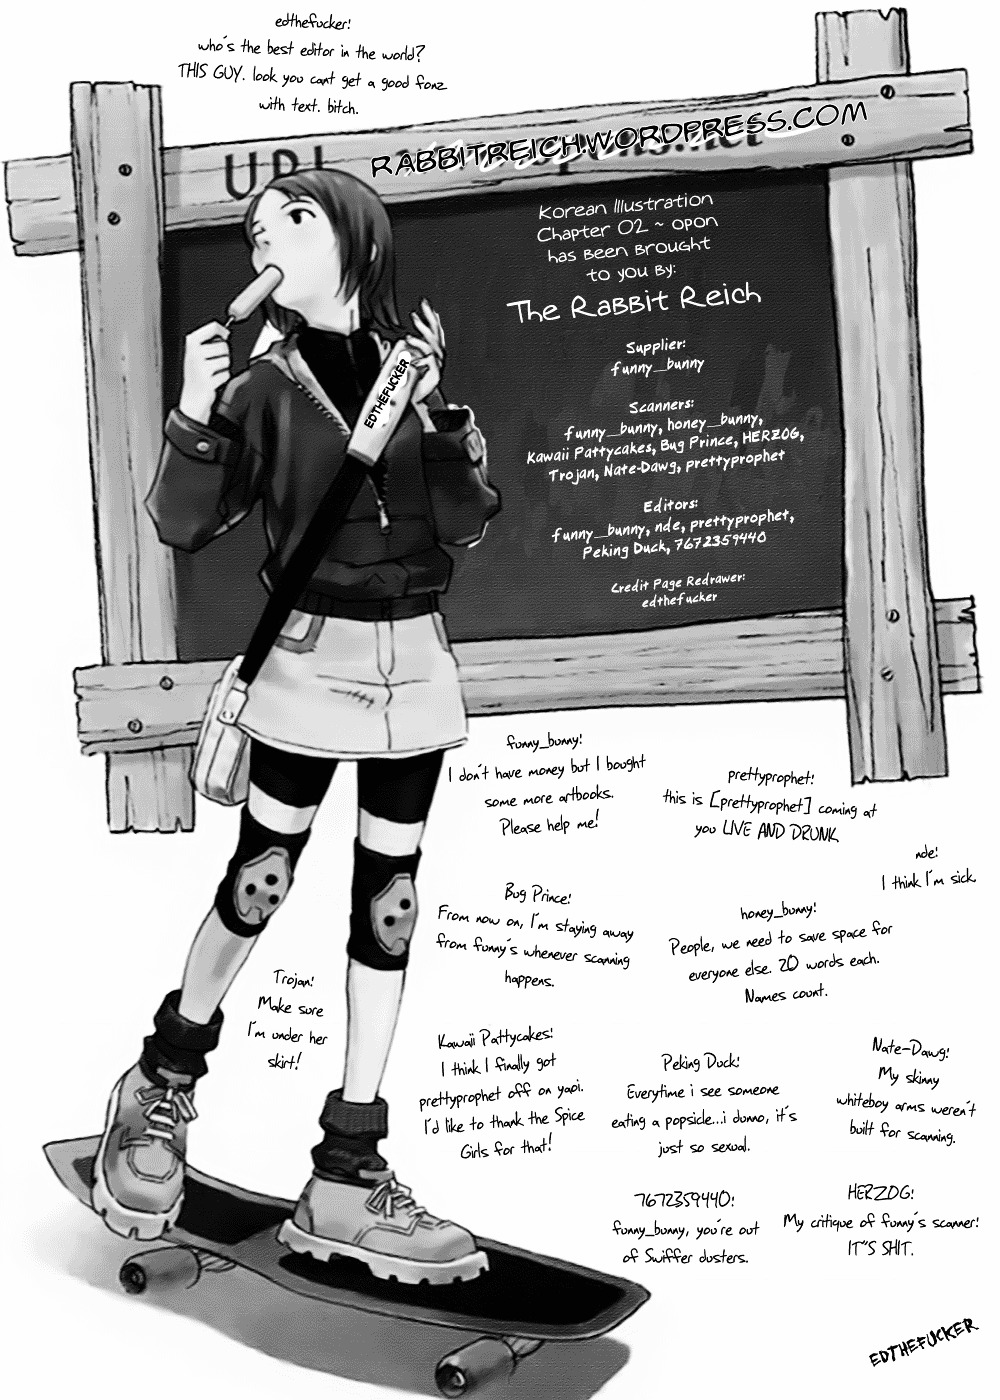 edthefucker!
who's the best editor in the world?
THIS GUY. look you cant get a good fonz
with text. bitch.
URL
RABBITREICH.WORDPRESS.COM
Korean Illustration
Chapter 02 ~ opon
has been brought
to you by:
The Rabbit Reich
Supplier:
funny_bunny
Scanners:
funny_bunny, honey_bunny,
Kawaii Pattycakes, Bug Prince, HERZOG,
Trojan, Nate-Dawg, prettyprophet
Editors:
funny_bunny, nde, prettyprophet,
Peking Duck, 7672359440
Credit Page Redrawer:
edthefucker
EDTHEFUCKER
funny_bunny!
I don't have money but I bought
some more artbooks.
Please help me!
prettyprophet!
this is [prettyprophet] coming at
you LIVE AND DRUNK
nde!
I think I'm sick.
Bug Prince!
From now on, I'm staying away
from funny's whenever scanning
happens.
honey_bunny!
People, we need to save space for
everyone else. 20 words each.
Names count.
Trojan!
Make sure
I'm under her
skirt!
Kawaii Pattycakes!
I think I finally got
prettyprophet off on yaoi.
I'd like to thank the Spice
Girls for that!
Peking Duck!
Everytime i see someone
eating a popsicle...i dunno, it's
just so sexual.
Nate-Dawg!
My skinny
whiteboy arms weren't
built for scanning.
7672359440!
funny_bunny, you're out
of Swiffer dusters.
HERZOG!
My critique of funny's scanner!
IT"S SHIT.
EDTHEFUCKER